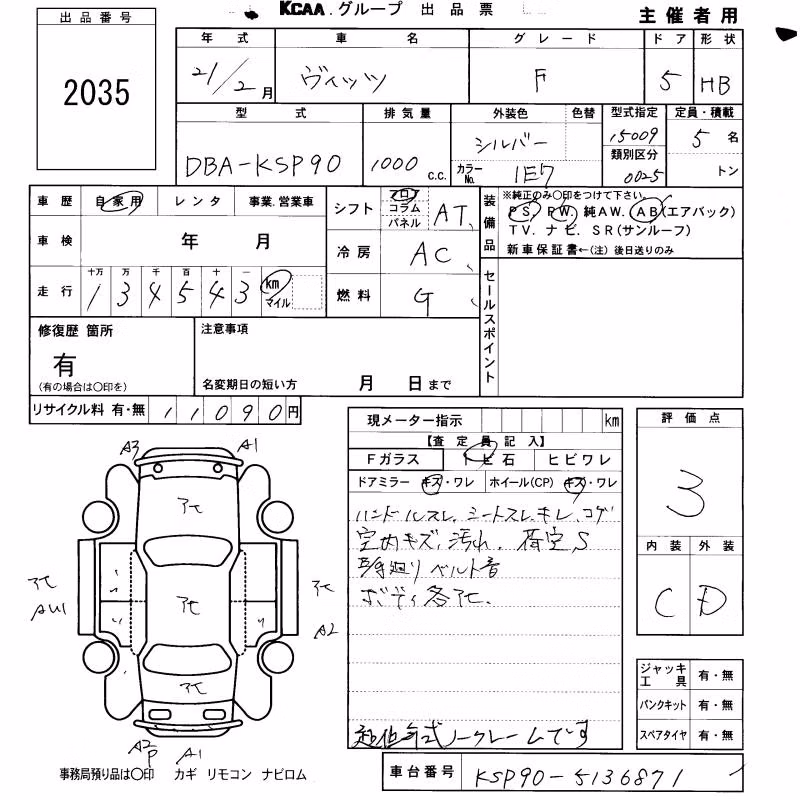 KCAA.グループ 出品票
主催者用
出品番号
2035
年式 車名 グレード ドア 形状
21/2月 ヴィッツ F 5 HB
型式 排気量 外装色 色替 型式指定 定員・積載
DBA-KSP90 1000 C.C. シルバー 15009 5名
カラーNo. 1E7 類別区分 0025 トン
車歴 自家用 レンタ 事業.営業車
シフト フロア コラム パネル AT
装備品 ※純正のみ〇印をつけて下さい。
PS. PW. 純AW. AB(エアバック)
TV. ナビ. SR(サンルーフ)
新車保証書←(注) 後日送りのみ
車検 年 月
冷房 AC
走行 十万 万 千 百 十 一
134543 km マイル
燃料 G
セールスポイント
修復歴 箇所
有
(有の場合は〇印を)
注意事項
名変期日の短い方 月 日まで
リサイクル料 有・無 11090円
現メーター指示 km
【査定員記入】
Fガラス トビ石 ヒビワレ
ドアミラー キズ・ワレ ホイール(CP) キズ・ワレ
ハンドルスレ、シートスレ、キレ、コゲ
室内キズ、汚れ、荷室S
ベルト音
ボディ各アセ、
ノークレームです
評価点
3
内装 外装
C D
ジャッキ 工具 有・無
パンクキット 有・無
スペアタイヤ 有・無
A3 A1
アセ
アセ AW1
アセ
アセ A2
アセ
A2 P A1
事務局預り品は〇印 カギ リモコン ナビロム
車台番号 KSP90-5136871